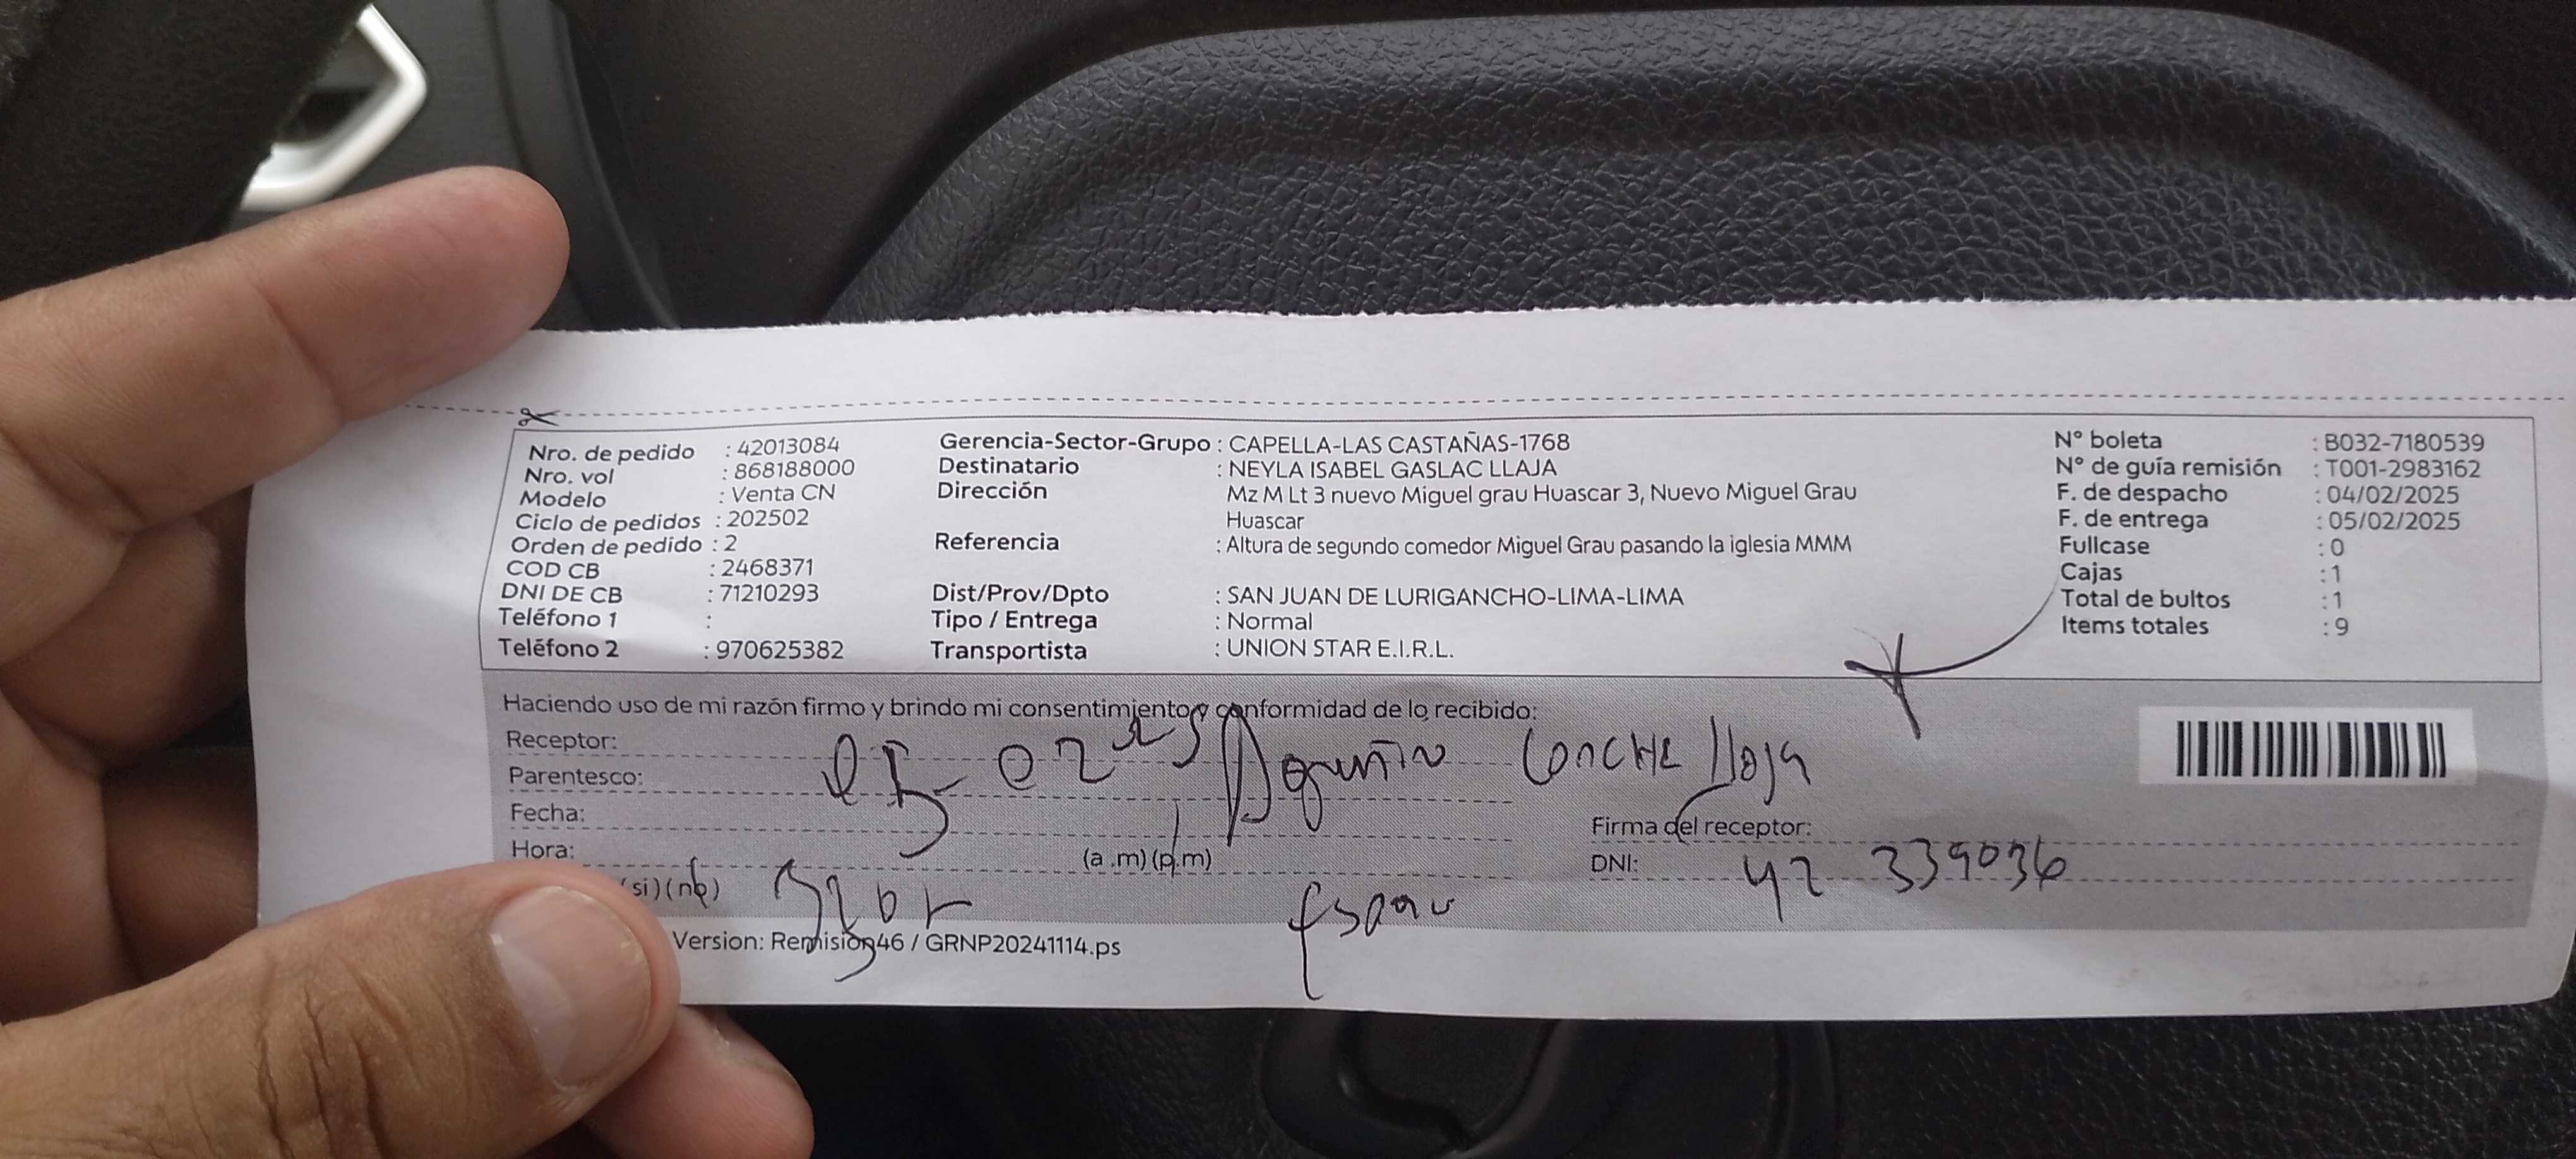 Nro. de pedido : 42013084
Nro. vol : 868188000
Modelo : Venta CN
Ciclo de pedidos : 202502
Orden de pedido : 2
COD CB : 2468371
DNI DE CB : 71210293
Teléfono 1 :
Teléfono 2 : 970625382
Gerencia-Sector-Grupo : CAPELLA-LAS CASTAÑAS-1768
Destinatario : NEYLA ISABEL GASLAC LLAJA
Dirección Mz M Lt 3 nuevo Miguel grau Huascar 3, Nuevo Miguel Grau
Huascar
Referencia : Altura de segundo comedor Miguel Grau pasando la iglesia MMM
Dist/Prov/Dpto : SAN JUAN DE LURIGANCHO-LIMA-LIMA
Tipo / Entrega : Normal
Transportista : UNION STAR E.I.R.L.
N° boleta : B032-7180539
N° de guía remisión : T001-2983162
F. de despacho : 04/02/2025
F. de entrega : 05/02/2025
Fullcase : 0
Cajas : 1
Total de bultos : 1
Items totales : 9
Haciendo uso de mi razón firmo y brindo mi consentimiento y conformidad de lo recibido:
Receptor:
Parentesco:
Fecha:
Hora: (a .m) (p.m)
(si) (no)
Firma del receptor:
DNI: 42 339036
Version: Remision46 / GRNP20241114.ps